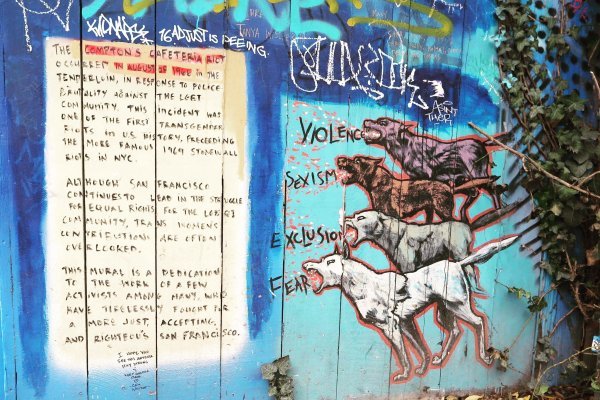 THE COMPTONS CAFETERIA RIOT
OCCURRED IN AUGUST OF 1966 IN THE
TENDERLOIN, IN RESPONSE TO POLICE
BRUTALITY AGAINST THE LGBT
COMMUNITY. THIS INCIDENT WAS
ONE OF THE FIRST TRANSGENDER
RIOTS IN U.S. HISTORY, PRECEEDING
THE MORE FAMOUS 1969 STONEWALL
RIOTS IN NYC.
ALTHOUGH SAN FRANCISCO
CONTINUES TO LEAD IN THE STRUGGLE
FOR EQUAL RIGHTS FOR THE LGBQI
COMMUNITY, TRANS WOMENS
CONTRIBUTIONS ARE OFTEN
OVERLOOKED.
THIS MURAL IS A DEDICATION
TO THE WORK OF A FEW
ACTIVISTS AMONG MANY, WHO
HAVE TIRELESSLY FOUGHT FOR
A MORE JUST, ACCEPTING,
AND RIGHTEOUS SAN FRANCISCO.
I HOPE YOU
VIOLENCE
SEXISM
EXCLUSION
FEAR